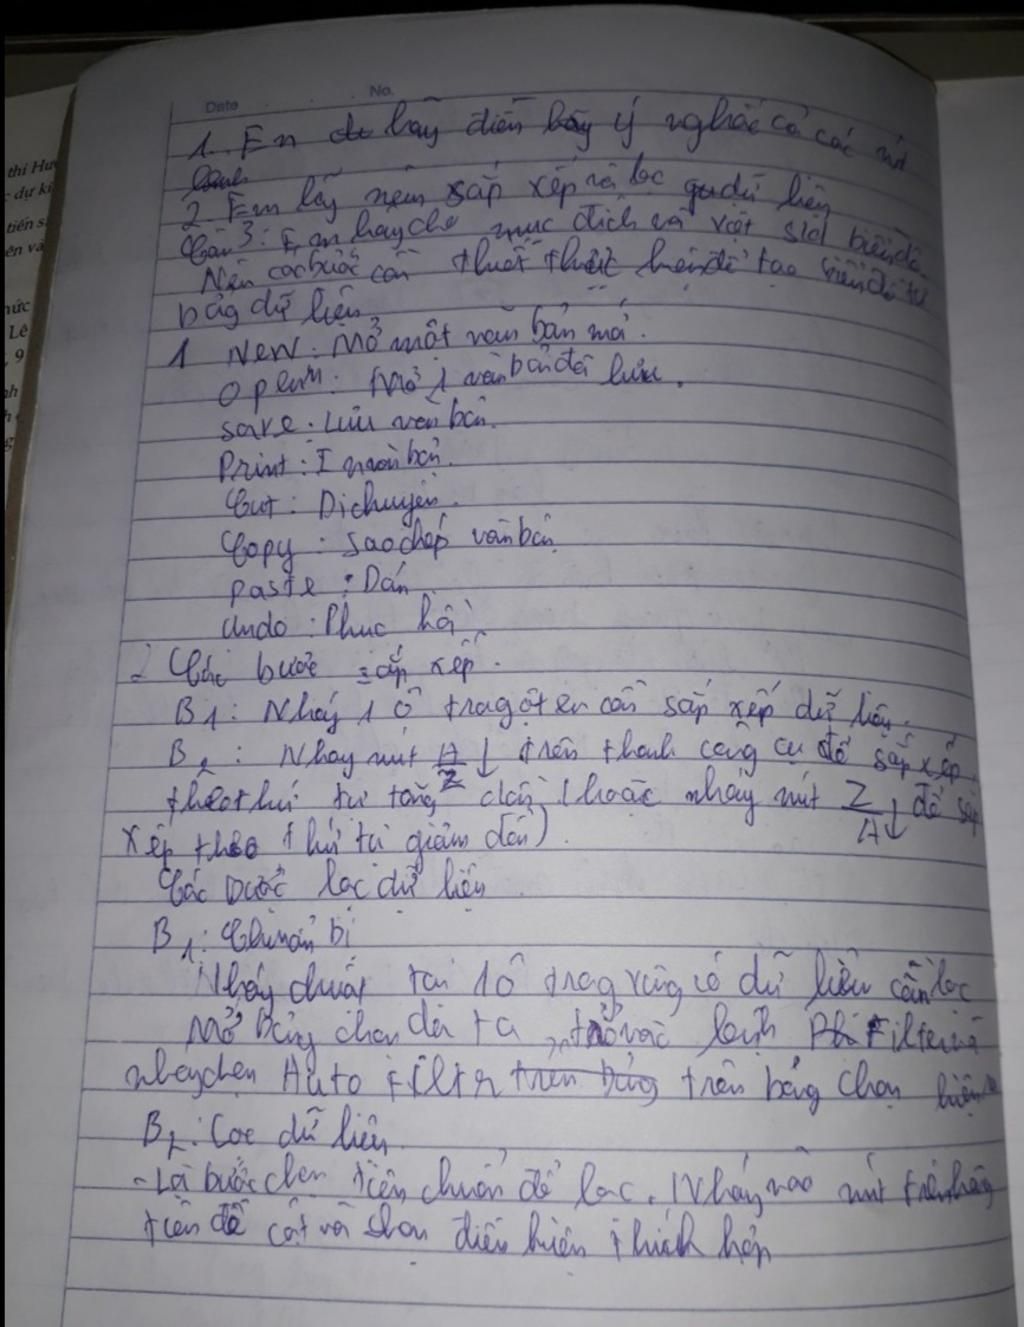 thi Hu
dự ki
tiến s
ên và
hức
Lê
9
nh
h
g
Date No.
1. Em hãy điền ý nghĩa của các nút
lệnh
2. Em hãy nêm sắp xếp và lọc dữ liệu
Câu 3: Em hay cho mục đích và việt sid biểu đồ
Nên các bước cần thiết thực hiện để tạo biểu đồ từ
bảg dữ liệu
1 New: Mở một văn bản mới.
Open: Mở 1 văn bản đã lưu.
Save. Lưu văn bản.
Print: I văn bản.
Cut: Di chuyển.
Copy: Sao chép văn bản
paste: Dán
Undo: Phục hồi
2 Các bước sắp xếp.
B1: Nháy 1 ô trag cột cần sắp xếp dữ liệu.
B2: Nhay nút A/Z↓ trên thanh công cụ để sắp xếp
theo thứ tự tăng dần (hoặc nháy nút Z/A↓ để sắp
xếp theo thứ tự giảm dần)
Các bước lọc dữ liệu
B1: Chuẩn bị
Nháy chuột tại 1 ô trag vùg có dữ liệu cần lọc
Mở bảng chọn data, trỏ vào lệnh Filter và
nháy chọn Auto Filter trên bảng trên bảng chọn hiện ra
B2: Lọc dữ liệu
- Là bước chọn tiêu chuẩn để lọc. Nháy vào nút trên hàng
tiêu đề cột và chọn điều kiện thích hợp